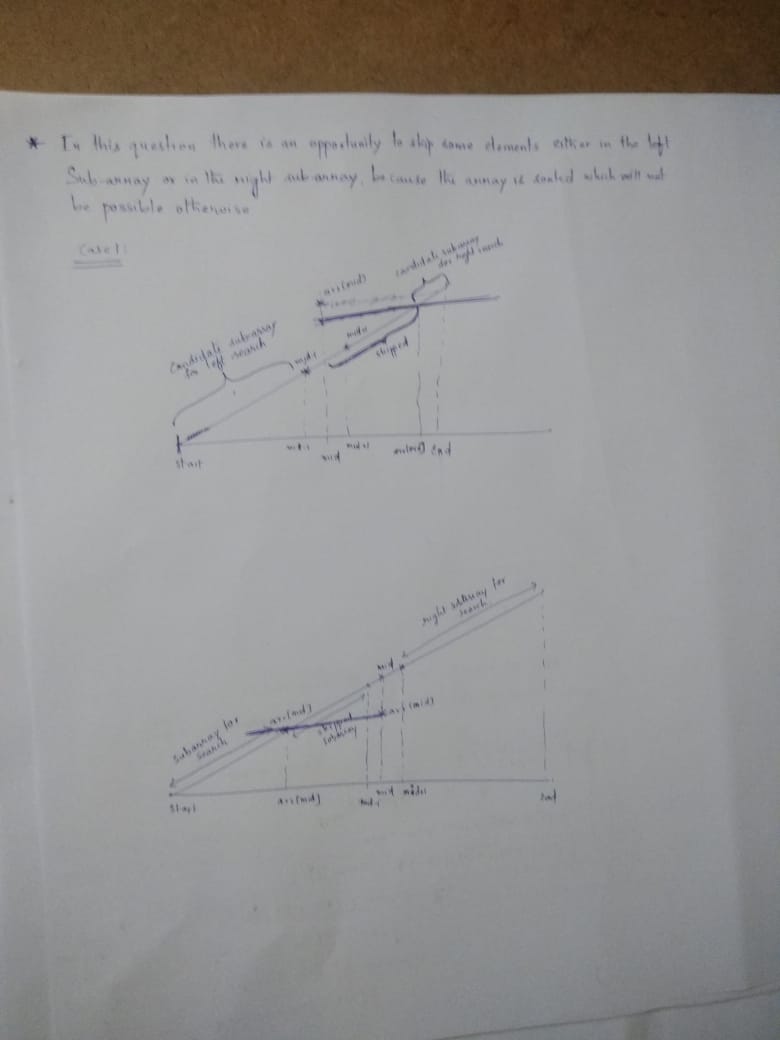 * In this question there is an opportunity to skip some elements either in the left
Sub-array or in the right sub-array, because the array is sorted which will not
be possible otherwise
Case 1:
candidate subarray
for right search
arr[mid]
candidate subarray
for left search
mid+1
skipped
mid-1
start
mid-1
mid
mid+1
arr[mid]
End
right subarray for
search
mid
arr[mid]
arr[mid]
subarray for
search
skipped
subarray
start
arr[mid]
mid-1
mid
mid+1
End